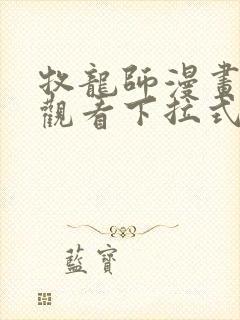 牧龍師漫畫
觀看下拉式
藍寶